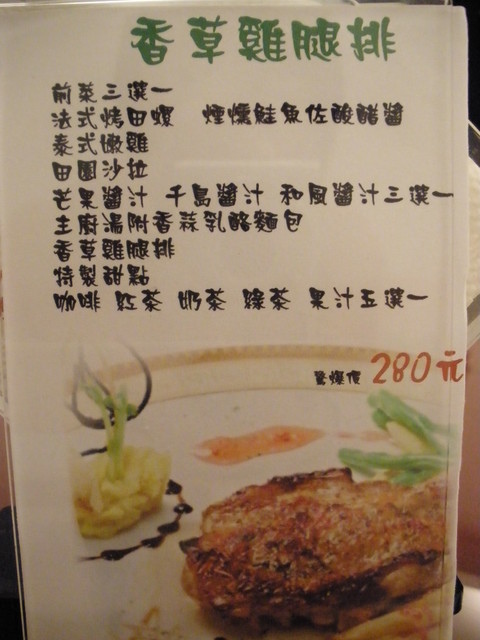 香草雞腿排
前菜三選一
法式烤田螺 煙燻鮭魚佐酸醋醬
泰式嫩雞
田園沙拉
芒果醬汁 千島醬汁 和風醬汁三選一
主廚湯附香蒜乳酪麵包
香草雞腿排
特製甜點
咖啡 紅茶 奶茶 綠茶 果汁五選一
驚爆價 280元